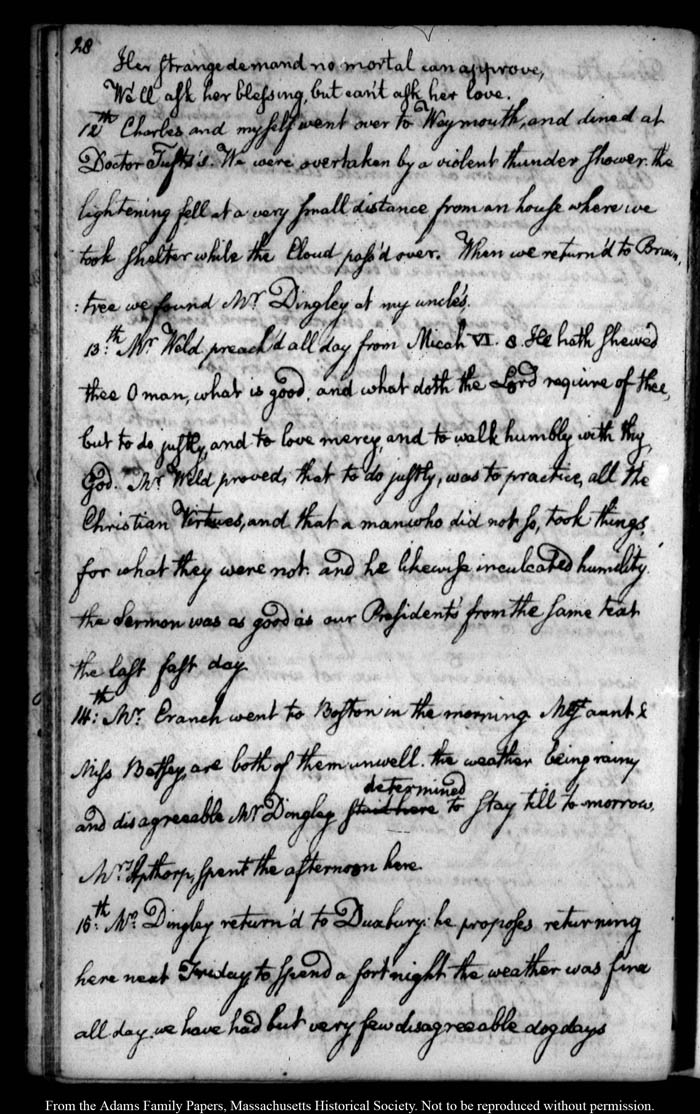 28
Her strange demand no mortal can approve,
We'll ask her blessing, but can't ask her love.
12th Charles and myself went over to Weymouth, and dined at
Doctor Tufts's. We were overtaken by a violent thunder shower. the
lightening fell at a very small distance from an house where we
took shelter while the Cloud pass'd over. When we return'd to Brain,
:tree we found Mr Dingley at my uncle's.
13:th Mr Weld preach'd all day from Micah VI. 8. He hath shewed
thee O man, what is good, and what doth the Lord require of thee,
but to do justly, and to love mercy, and to walk humbly with thy
God. Mr Weld proved, that to do justly, was to practice, all the
Christian Virtues, and that a man who did not so, took things,
for what they were not: and he likewise inculcated humility.
the Sermon was as good as our President's from the same text
the last fast day.
14:th Mr. Cranch went to Boston in the morning. My aunt &
Miss Betsey, are both of them unwell. the weather being rainy
determined
and disagreeable Mr Dingley staid here to stay till to morrow.
Mrs Apthorp, spent the afternoon here.
15:th Mr Dingley return'd to Duxbury: he proposes returning
here next Friday, to spend a fortnight the weather was fine
all day. we have had but very few disagreeable dog days
From the Adams Family Papers, Massachusetts Historical Society. Not to be reproduced without permission.